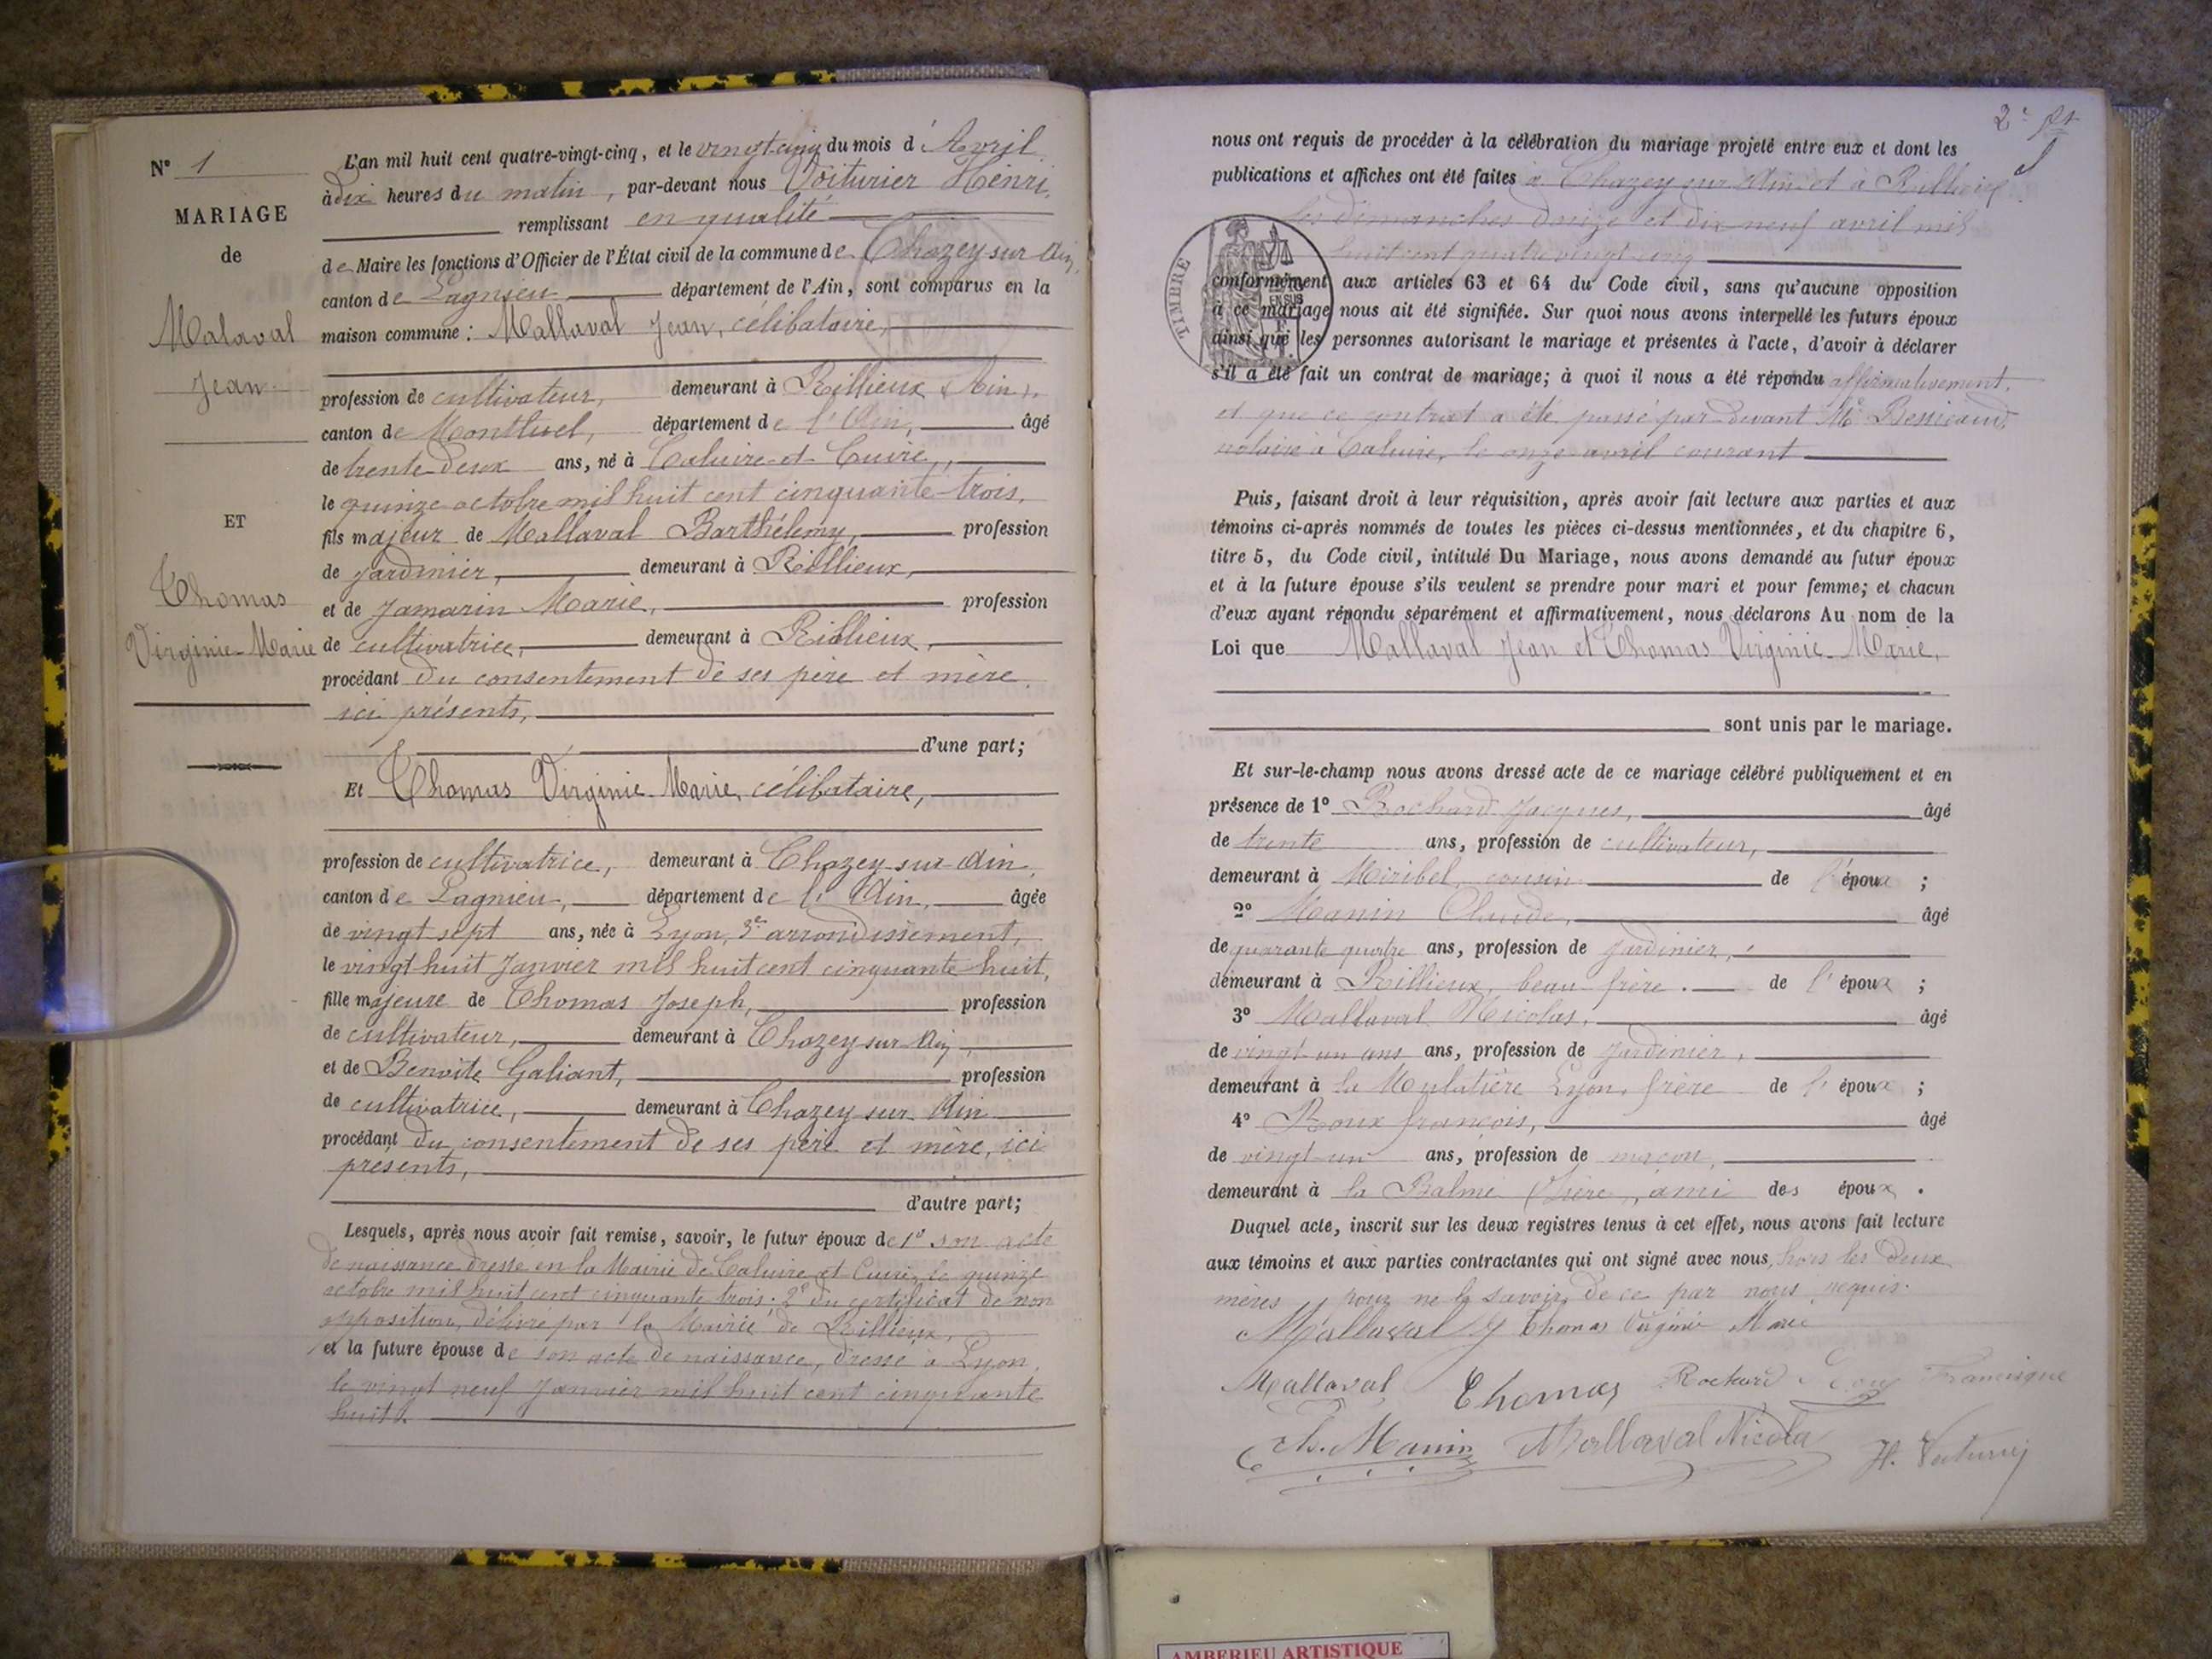 N° 1
MARIAGE
de
Malaval
Jean
ET
Thomas
Virginie-Marie
L'an mil huit cent quatre-vingt-cinq, et le vingt cinq du mois d'Avril
à dix heures du matin, par-devant nous Voiturier Henri,
remplissant en qualité
de Maire les fonctions d'Officier de l'État civil de la commune de Chazey sur Ain,
canton de Lagnieu département de l'Ain, sont comparus en la
maison commune : Mallaval Jean, célibataire,
profession de cultivateur, demeurant à Rillieux (Ain),
canton de Montluel, département de l'Ain, âgé
de trente-deux ans, né à Caluire-et-Cuire,
le quinze octobre mil huit cent cinquante-trois,
fils majeur de Mallaval Barthélemy, profession
de jardinier, demeurant à Rillieux,
et de Jamarin Marie, profession
de cultivatrice, demeurant à Rillieux,
procédant du consentement de ses père et mère
ici présents,
d'une part;
Et Thomas Virginie-Marie, célibataire,
profession de cultivatrice, demeurant à Chazey-sur-Ain,
canton de Lagnieu, département de l'Ain, âgée
de vingt sept ans, née à Lyon, 3e arrondissement,
le vingt huit Janvier mil huit cent cinquante huit,
fille majeure de Thomas Joseph, profession
de cultivateur, demeurant à Chazey-sur-Ain,
et de Benoite Galiant, profession
de cultivatrice, demeurant à Chazey-sur-Ain
procédant du consentement de ses père et mère, ici
présents,
d'autre part;
Lesquels, après nous avoir fait remise, savoir, le futur époux de 1° son acte
de naissance dressé en la Mairie de Caluire et Cuire, le quinze
octobre mil huit cent cinquante trois. 2° du certificat de non
opposition, délivré par la Mairie de Rillieux,
et la future épouse de son acte de naissance, dressé à Lyon,
le vingt neuf Janvier mil huit cent cinquante
huit.
2e
nous ont requis de procéder à la célébration du mariage projeté entre eux et dont les
publications et affiches ont été faites à Chazey sur Ain et à Rillieux
les dimanches douze et dix-neuf avril mil
huit cent quatre vingt cinq
TIMBRE
conformément aux articles 63 et 64 du Code civil, sans qu'aucune opposition
à ce mariage nous ait été signifiée. Sur quoi nous avons interpellé les futurs époux
ainsi que les personnes autorisant le mariage et présentes à l'acte, d'avoir à déclarer
s'il a été fait un contrat de mariage; à quoi il nous a été répondu affirmativement,
et que ce contrat a été passé par-devant Me
notaire à Caluire, le onze avril courant
Puis, faisant droit à leur réquisition, après avoir fait lecture aux parties et aux
témoins ci-après nommés de toutes les pièces ci-dessus mentionnées, et du chapitre 6,
titre 5, du Code civil, intitulé Du Mariage, nous avons demandé au futur époux
et à la future épouse s'ils veulent se prendre pour mari et pour femme; et chacun
d'eux ayant répondu séparément et affirmativement, nous déclarons Au nom de la
Loi que Mallaval Jean et Thomas Virginie-Marie,
sont unis par le mariage.
Et sur-le-champ nous avons dressé acte de ce mariage célébré publiquement et en
présence de 1° Rochard Jacques, âgé
de trente ans, profession de cultivateur,
demeurant à Miribel, cousin de l'époux ;
2° Manin Claude, âgé
de quarante quatre ans, profession de jardinier,
demeurant à Rillieux, beau frère. de l'époux ;
3° Mallaval Nicolas, âgé
de vingt un ans ans, profession de jardinier,
demeurant à la Mulatière Lyon, frère de l'époux ;
4° Roux françois, âgé
de vingt-un ans, profession de maçon,
demeurant à la Balme (Isère), ami des époux.
Duquel acte, inscrit sur les deux registres tenus à cet effet, nous avons fait lecture
aux témoins et aux parties contractantes qui ont signé avec nous, hors les deux
mères pour ne le savoir, de ce par nous requis.
Mallaval J Thomas Virginie Marie
Mallaval Thomas Rochard Roux Francisque
Cl. Manin Mallaval Nicola H. Voiturier
AMBERIEU ARTISTIQUE